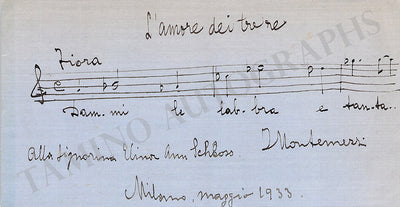 L'amore dei tre re
Fiora
Dam-mi le lab-bra e tan-ta..
Alla Signorina Elinor Ann Schloss.
I Montemezzi
Milano, maggio 1933.
TAMINO AUTOGRAPHS